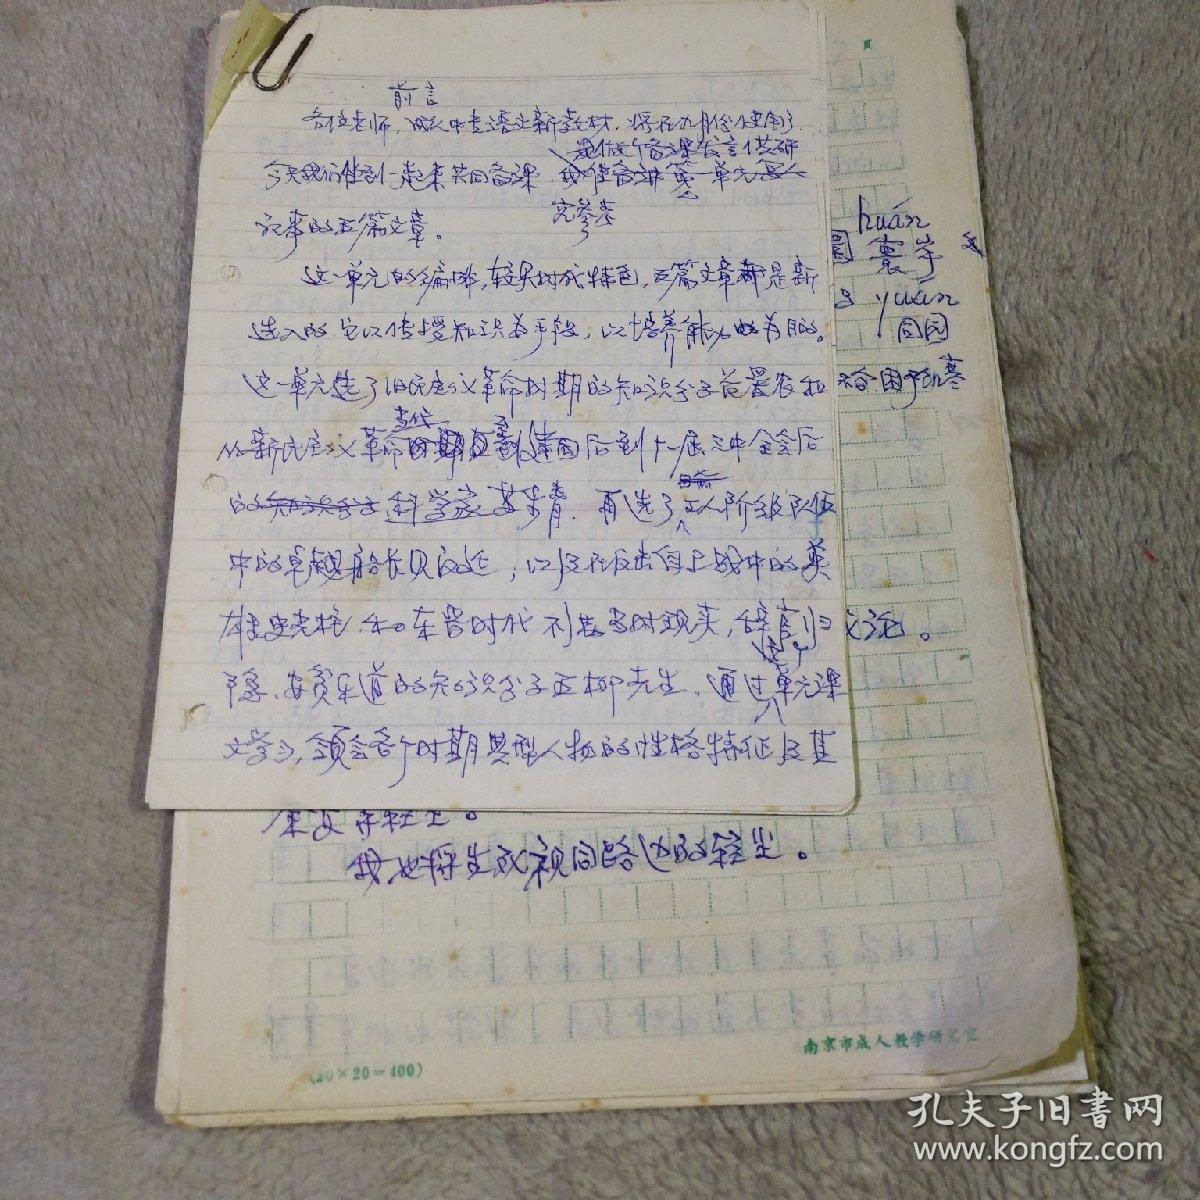 前言
各位老师，成人中专语文新教材，将在九月份使用了
是作个备课发言供研
今天我们集到一起来共同备课 我准备讲第一单元
究参考
记事的五篇文章。
这一单元的编排，较具时代特色，五篇文章都是新
选入的 它以传授知识为手段，以培养能力为目的。
这一单元选了旧民主义革命时期的知识分子
当代
从新民主义革命时期 建国后到十一届三中全会后
的知识分子 科学家苏步青，再选了工人阶级队伍
中的卓越船长贝汉廷，以及在反击自上战中的英
雄史光柱 和东晋时代不满当时现实，辞官归
隐、安贫乐道的知识分子五柳先生，通过单元课
文学习，领会各个时期典型人物的性格特征及其
页
huán
圜 寰宇
yuán
回园
我也将生死视同路边的轻尘。
(20×20=400)
南京市成人教学研究室
孔夫子旧书网
www.kongfz.com